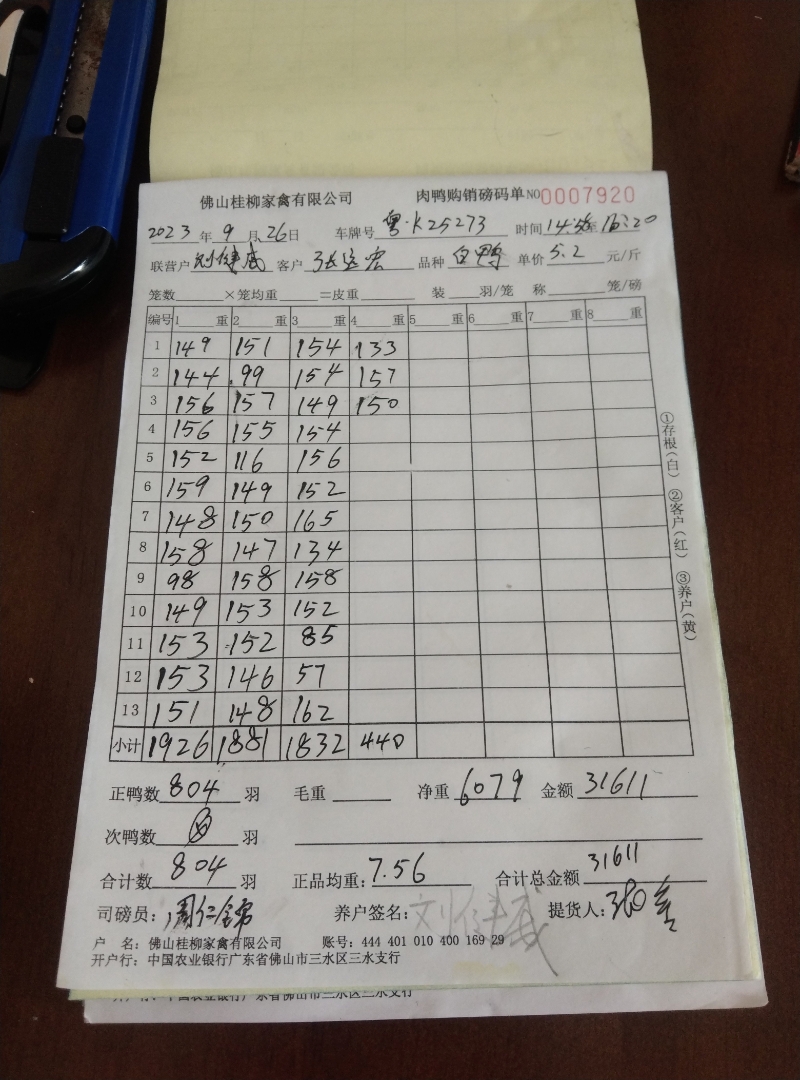 佛山桂柳家禽有限公司 肉鸭购销磅码单 NO 0007920
2023年9月26日 车牌号 粤·K25273 时间 14:55至16:20
联营户 刘健威 客户 张远宏 品种 白鸭 单价 5.2 元/斤
笼数 ×笼均重 =皮重 装 羽/笼 称 笼/磅
编号 1 重 2 重 3 重 4 重 5 重 6 重 7 重 8 重
1 149 151 154 133
2 144 99 154 157
3 156 157 149 150
4 156 155 154
5 152 116 156
6 159 149 152
7 148 150 165
8 158 147 134
9 98 158 158
10 149 153 152
11 153 152 85
12 153 146 57
13 151 148 162
小计 1926 1881 1832 440
正鸭数 804 羽 毛重 净重 6079 金额 31611
次鸭数 羽
合计数 804 羽 正品均重: 7.56 合计总金额 31611
司磅员: 周仁锦 养户签名: 刘健威 提货人:
户 名: 佛山桂柳家禽有限公司 账号: 444 401 010 400 169 29
开户行: 中国农业银行广东省佛山市三水区三水支行
①存根(白) ②客户(红) ③养户(黄)
开户行: 中国农业银行广东省佛山市三水区三水支行